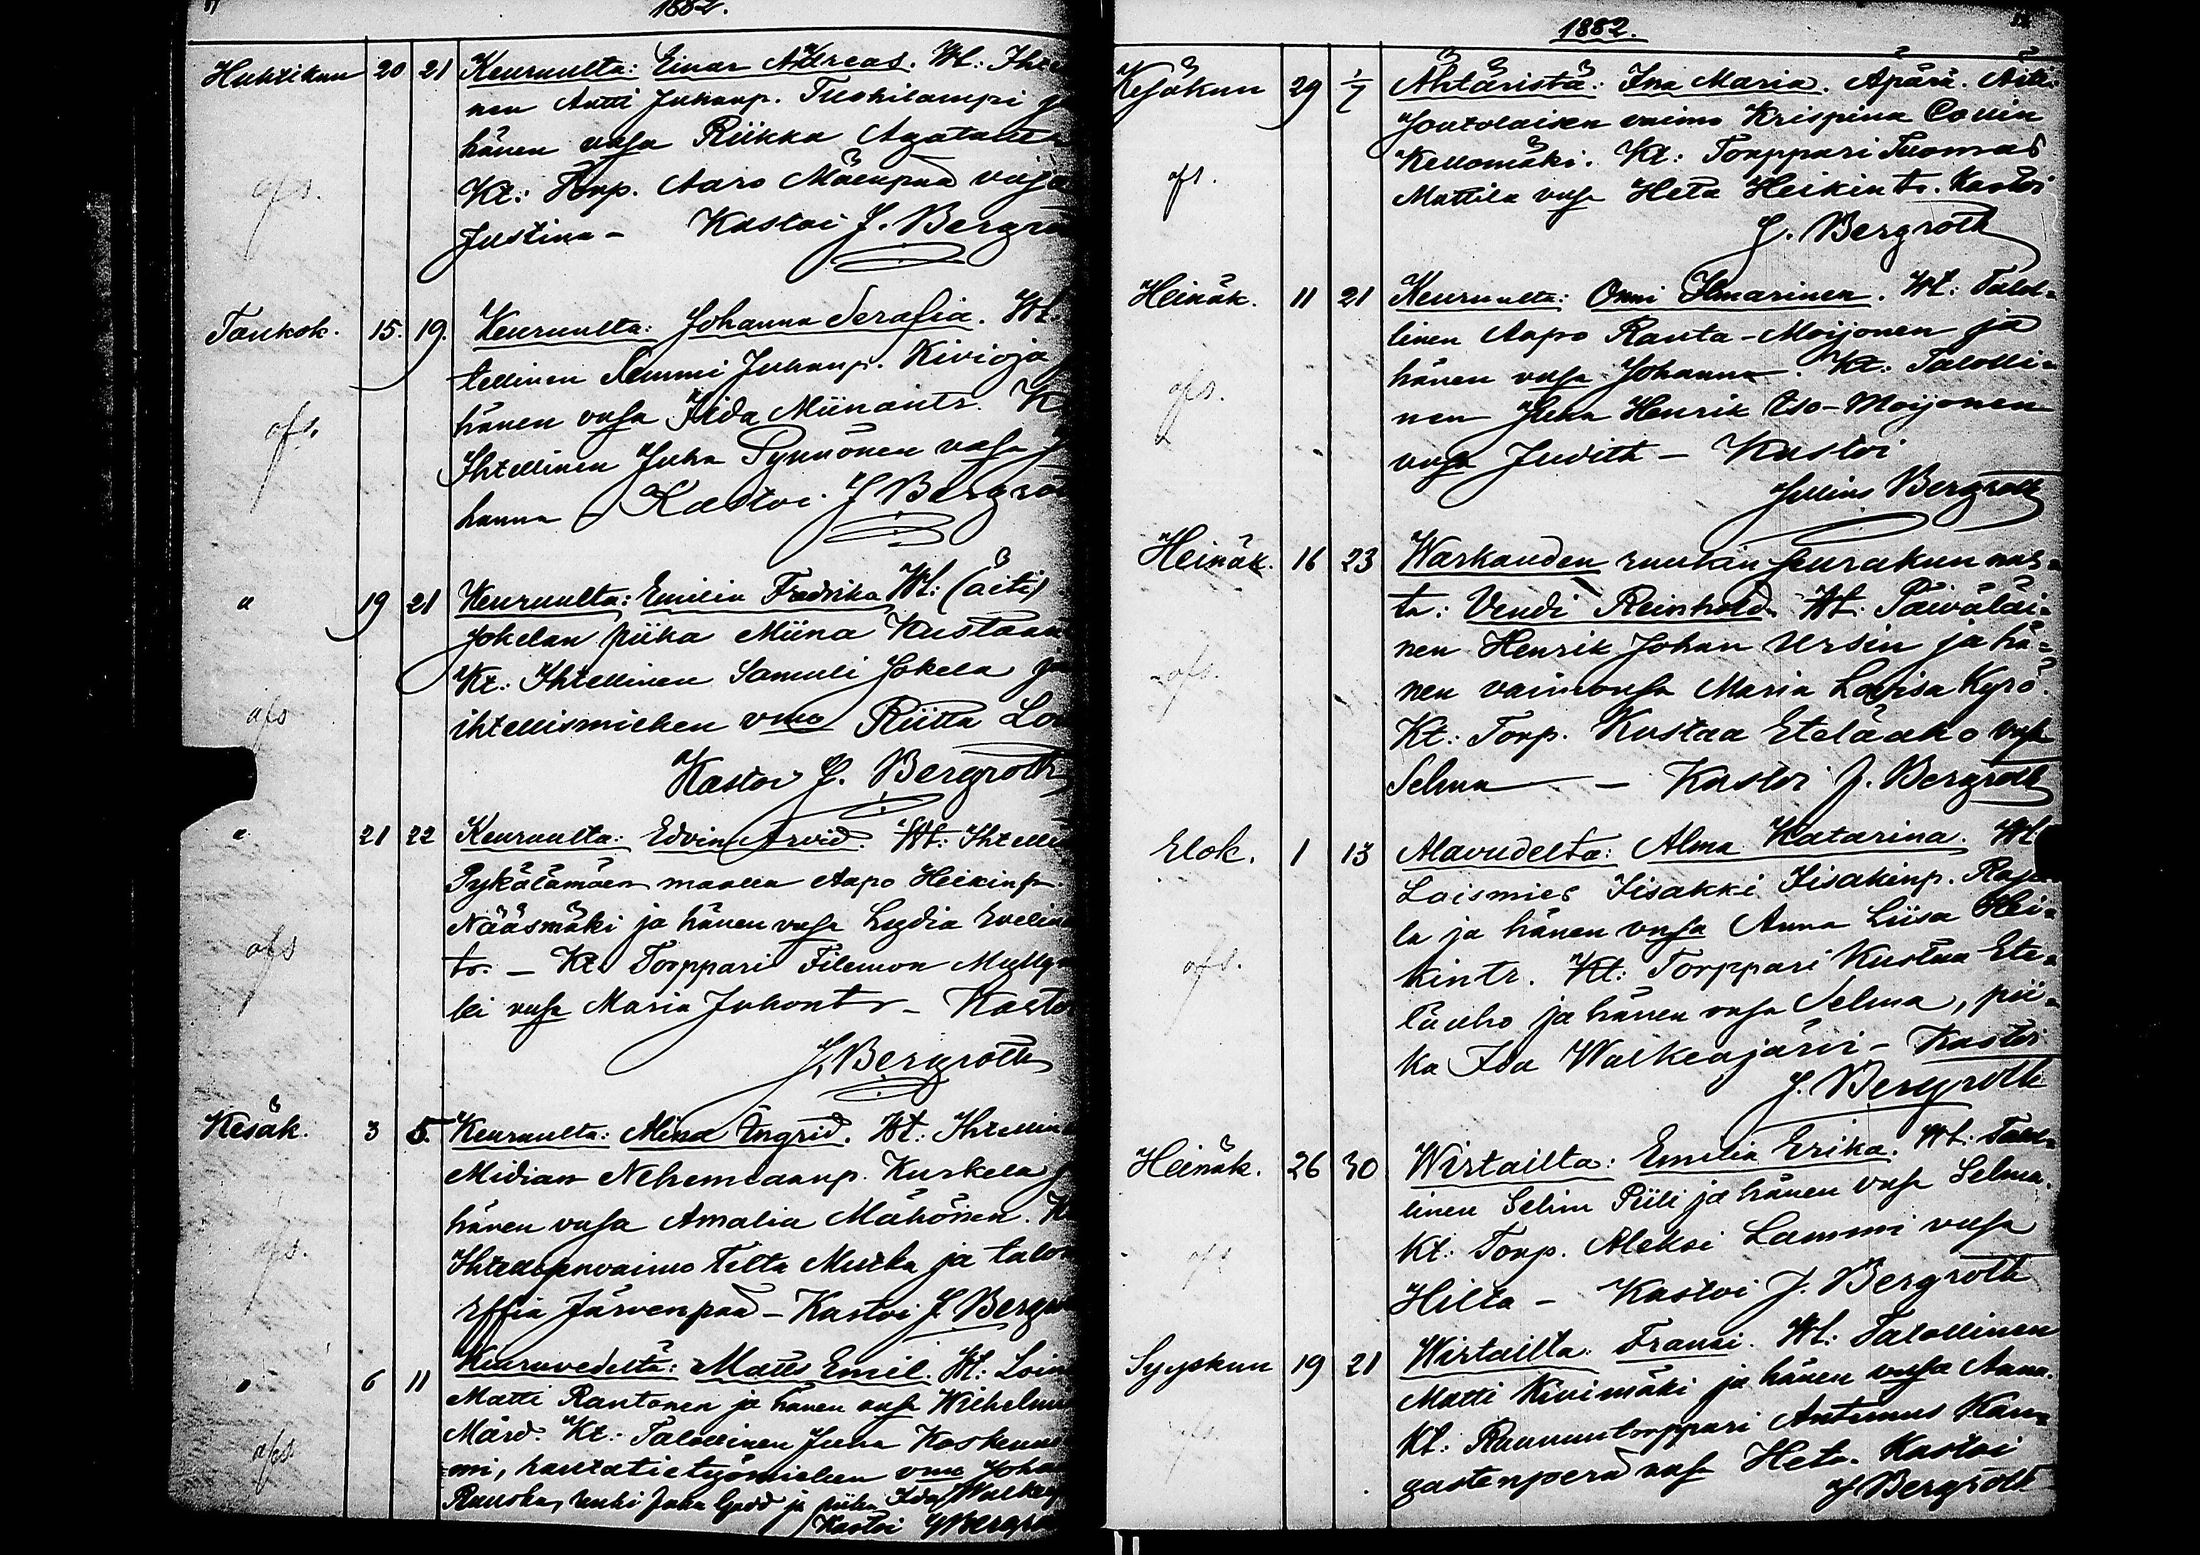 1882.
Huhtikuu 20 21 Keuruulta: Einar Andreas. Wt: Ihte
nen Antti Juhanp. Tuohilampi
hänen vsa Riikka Agata
Kt: Torp. Aaro Mäenpää vsa
ofs.
Justina - Kastoi J. Bergro
Toukok. 15. 19. Keuruulta: Johanna Serafia. Wt.
tellinen Nemmi Juhanp. Kivioja
hänen vsa Iida Miinantr. K
ofs.
Ihtellinen Juha Pynnönen vsa J
hanna Kastoi J Bergro
" 19 21 Keuruulta: Emilia Fredrika Wt: (äiti)
Jokelan piika Miina Kustaan
Kt: Ihtellinen Samuli Jokela
ofs
ihtellismiehen vmo Riitta Lo
Kastoi J. Bergroth
" 21 22 Keuruulta: Edvin Arvid. Wt: Ihtelli
Pykälämäen maalla Aapo Heikinp.
Nääsmäki ja hänen vsa Lydia Evelina
ofs
tr. - Kt: Torppari Filemon Mylly
ki vsa Maria Juhontr - Kasto
J. Bergroth
Kesäk. 3 5. Keuruulta: Mina Ingrid. Wt: Ihtellin
Midian Nehemianp. Kurkela
hänen vsa Amalia Mähönen. K
ofs.
Ihtellisenvaimo Tilta Mutka ja talon
Effia Järvenpää - Kastoi J. Bergro
" 6 11 Keuruvedeltä: Matts Emil. Wt: Loim
Matti Rantonen ja hänen vsa Wilhelmi
Märd. Kt: Talollinen Juha Koskenni
ofs.
mi, rautatietyömiehen vmo Joha
Ruuska, renki Juha Gadd ja piika Ida Walkea
Kastoi J Bergro
1882.
Kesäkuu 29 1/7 Ähtäristä: Ina Maria. Äpärä. Äiti:
Joutolaisen vaimo Krispina
Kellomäki. Kt: Torppari Tuomas
ofs.
Mattila vsa Heta Heikintr. Kastoi
J. Bergroth
Heinäk. 11 21 Keuruulta: Onni Ilmarinen. Wt: Talol-
linen Aapo Ranta-Moijonen ja
hänen vsa Johanna. Kt: Talolli-
ofs.
nen Juha Henrik Iso-Moijonen
vsa Judith - Kastoi
Julius Bergroth
Heinäk. 16 23 Warkauden ruukin seurakunnas-
ta: Vendi Reinhold. Wt: Päiväläi-
nen Henrik Johan Ursin ja hä-
ofs.
nen vaimonsa Maria Lovisa Kyrö.
Kt: Torp. Kustaa Eteläaho vsa
Selma - Kastoi J. Bergroth
Elok. 1 13 Alavudelta: Alma Katarina. Wt
Loismies Iisakki Iisakinp. Raja-
la ja hänen vsa Anna Liisa Hei-
ofs.
kintr. Kt: Torppari Kustaa Ete-
läaho ja hänen vsa Selma, pii-
ka Ida Walkeajärvi - Kastoi
J. Bergroth
Heinäk. 26 30 Wirtailta: Emilia Erika. Wt: Talol-
linen Selim Piili ja hänen vsa Selma.
ofs
Kt: Torp. Aleksi Lammi vsa
Hilta - Kastoi J. Bergroth
Syyskuu 19 21 Wirtailta: Fransi. Wt: Talollinen
Matti Kivimäki ja hänen vsa Anna.
ofs.
Kt: Ruununtorppari Antinus Kan-
gastenperä vsa Heta. Kastoi
J Bergroth